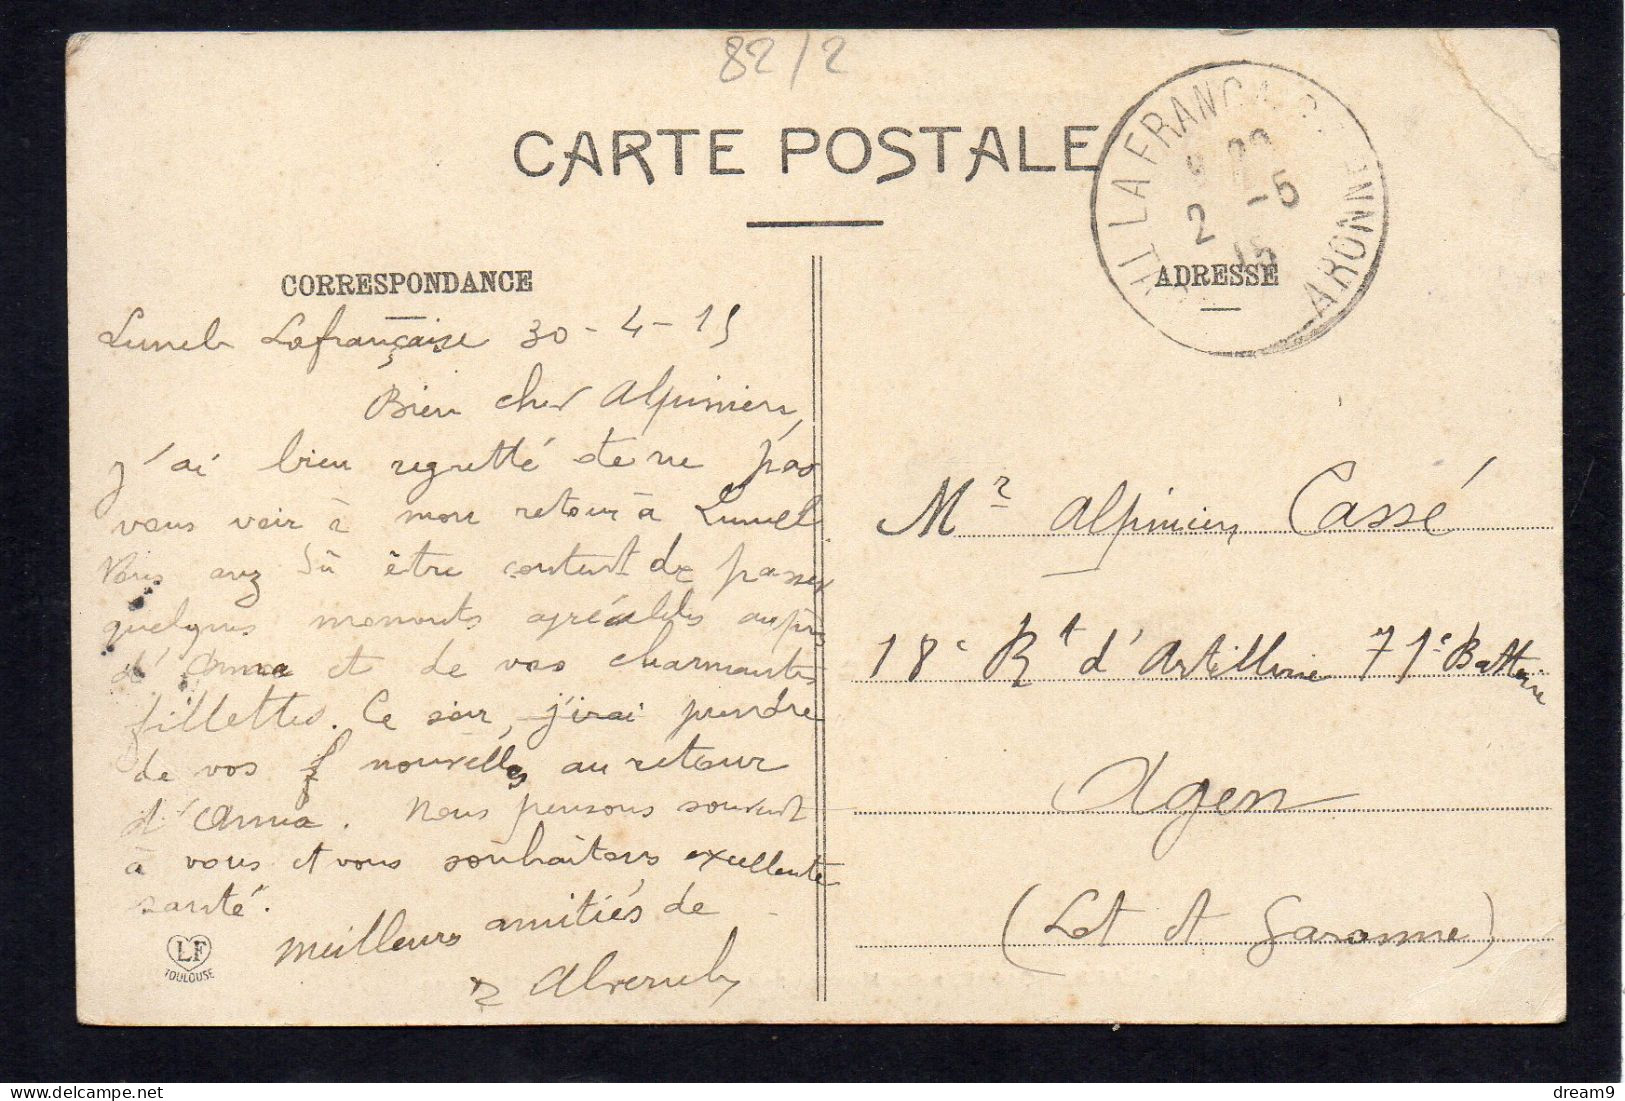 82/2
CARTE POSTALE
CORRESPONDANCE
ADRESSE
LAFRANÇAISE
2 -5
15
ARONNE
Lunel Lafrançaise 30-4-15
Bien cher Alpinien,
j'ai bien regretté de ne pas
vous voir à mon retour à Lunel
Vous avez dû être content de passer
quelques moments agréables auprès
d'Anna et de vos charmantes
fillettes. Ce soir, j'irai prendre
de vos nouvelles au retour
d'Anna. Nous pensons souvent
à vous et vous souhaitons excellente
santé.
Meilleurs amitiés de
Mr Alpinien Cassé
18e Rt d'Artillerie 71e Batterie
Agen
(Lot et Garonne)
LF
TOULOUSE
dream9